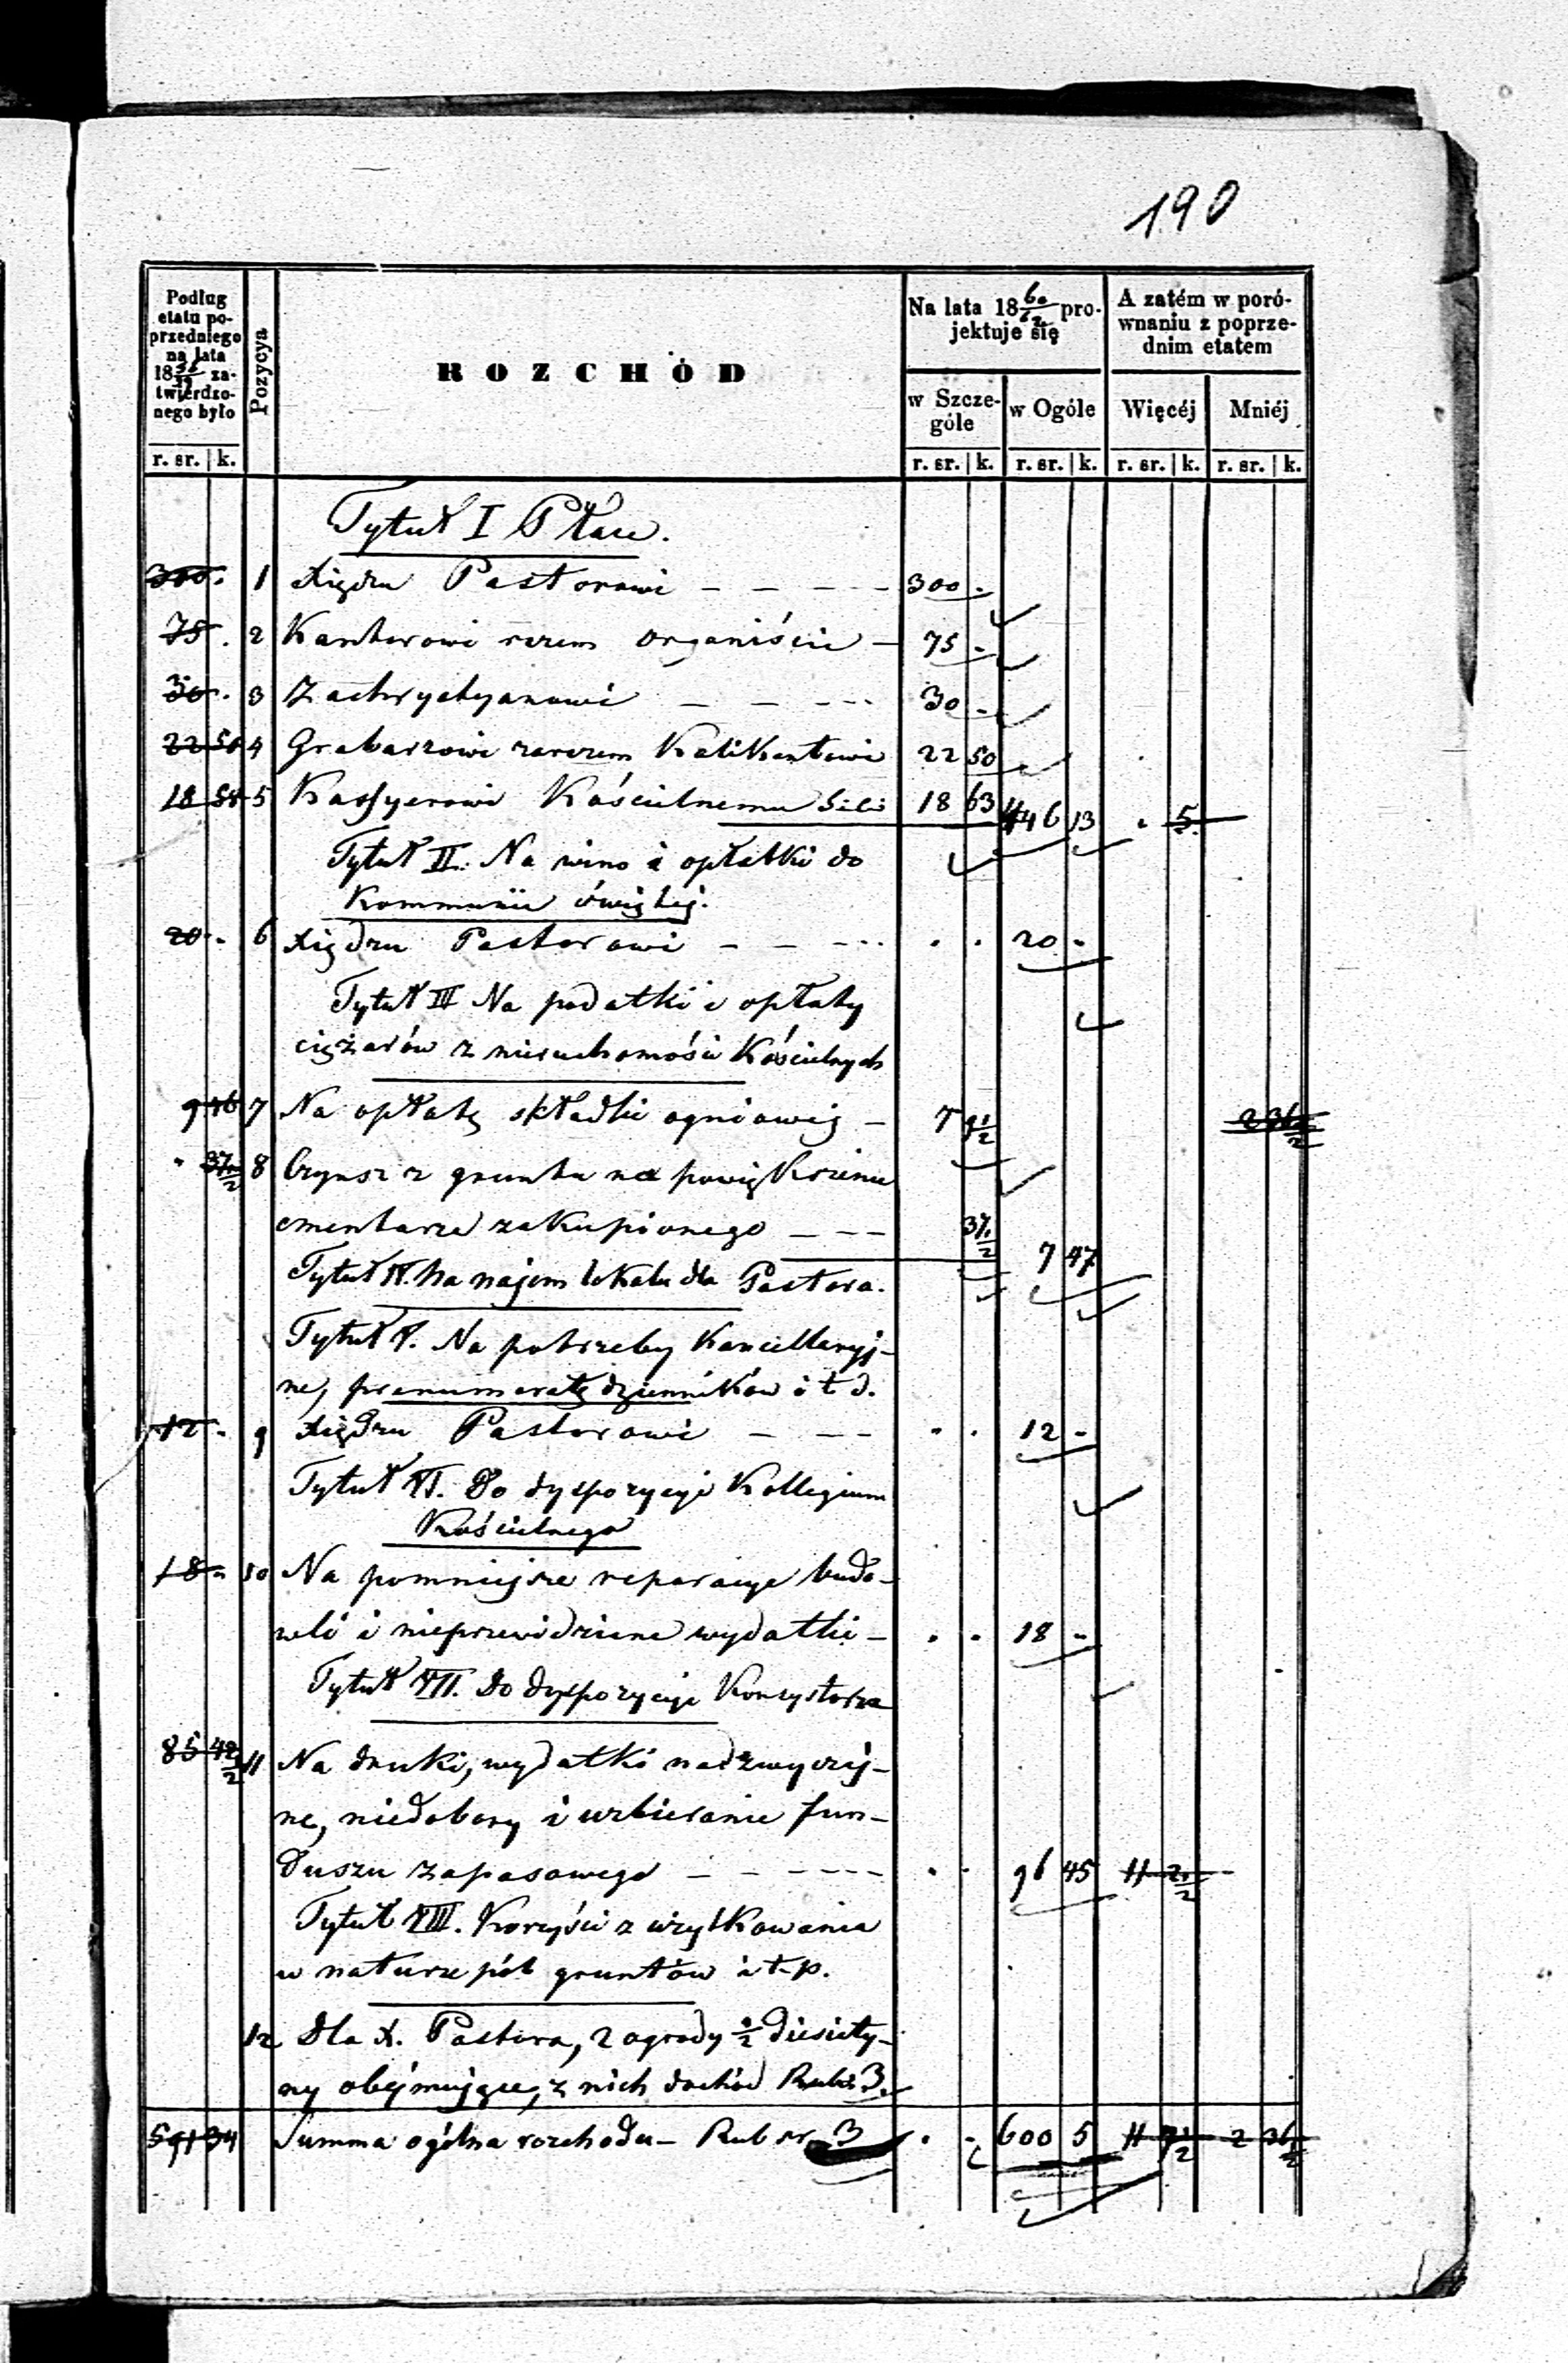 190
Podług
etatu po-
przedniego
na lata
18 za-
twierdzo-
nego było
Pozycya
ROZCHÓD
Na lata 18 60/62 pro-
jektuje się
A zatém w poró-
wnaniu z poprze-
dnim etatem
w Szcze-
góle
w Ogóle
Więcéj
Mniéj
r. sr. k. r. sr. k. r. sr. k. r. sr. k. r. sr. k.
Tytuł I Płace.
300 . 1 Xiędzu Pastorowi – – – – 300 -
75 . 2 Kantorowi razem organiście – 75 -
30 . 3 Zachrystyanowi – – --- 30 -
22 50 4 Grabarzowi zarazem Kalikantowi 22 50
18 58 5 Kassyerowi Kościelnemu 18 63 446 13 . 5
Tytuł II. Na wino i opłatki do
Kommunii świętej.
20 . 6 Xiędzu Pastorowi – – --- . . 20 -
Tytuł III Na podatki i opłaty
ciężarów z nieruchomości Kościelnych
9 46 7 Na opłatę składki ogniowej – 7 9 1/2 2 36 1/2
. 37 1/2 8 Czynsz z gruntu na powiększenie
cmentarza zakupionego – – – 37 1/2 7 47
Tytuł IV. Na najem lokalu dla Pastora.
Tytuł V. Na potrzeby Kancellaryj-
ne, prenumeratę dzienników i t d.
12 . 9 Xiędzu Pastorowi – – – . . 12 -
Tytuł VI. Do dyspozycyi Kollegium
Kościelnego
18 - 10 Na pomniejsze reparacye budo-
wli i nieprzewidziane wydatki – . . 18 -
Tytuł VII. Do dyspozycyi Konsystorza
85 42 1/2 11 Na druki, wydatki nadzwyczaj-
ne, niedobory i uzbieranie fun-
duszu zapasowego – – – --- . . 96 45 11 2 1/2
Tytuł VIII. Korzyści z użytkowania
w naturze pól gruntów i t.p.
12 Dla X. Pastora, 2 ogrody 1/2 diesiaty-
ny obejmujące, z nich dochód Rubsr 3.
591 34 Summa ogólna rozchodu – Rub sr 3 . - 600 5 11 7 1/2 2 36 1/2